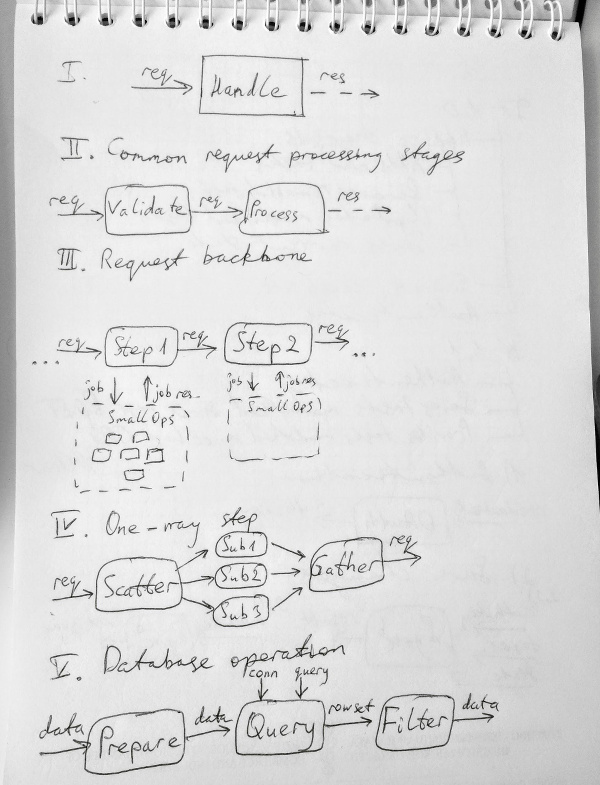 I.
req Handle res
II. Common request processing stages
req Validate req Process res
III. Request backbone
... req Step 1 req Step 2 req ...
job job res job job res
Small Ops Small Ops
IV. One-way step
req Scatter Sub1 Sub2 Sub3 Gather req
V. Database operation
conn query
data Prepare data Query rowset Filter data